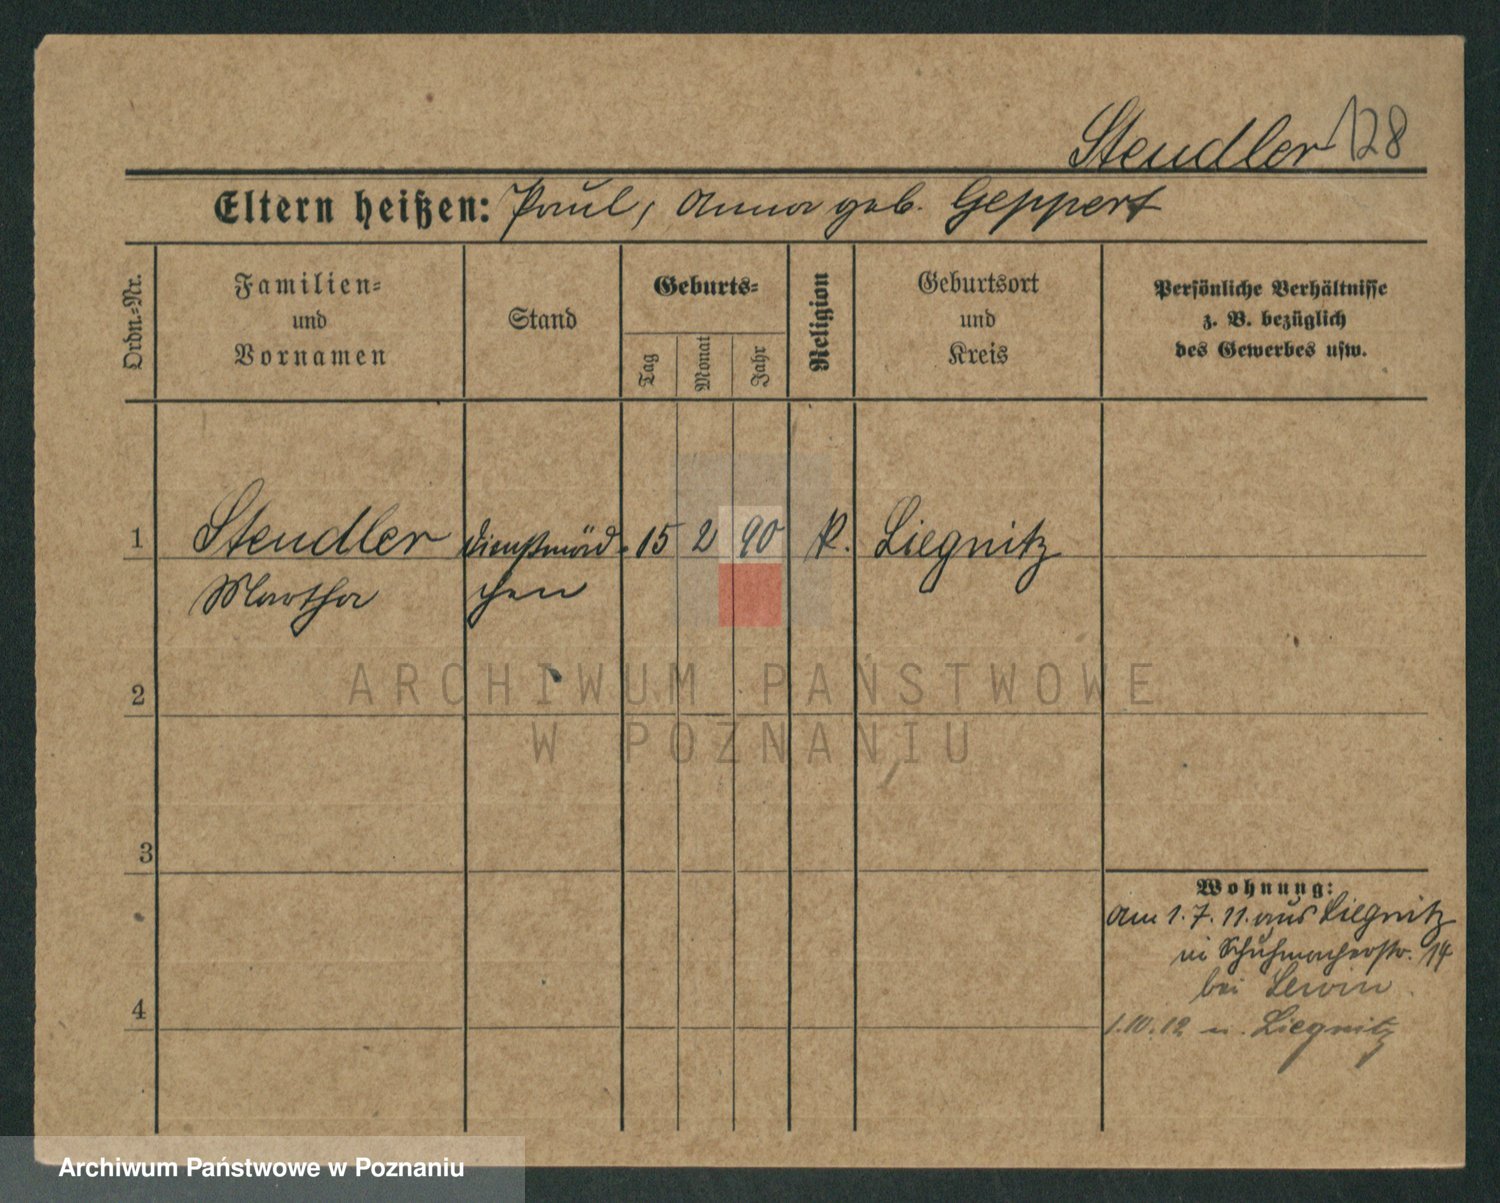 Stendler 128
Eltern heißen: Paul, Anna geb. Geppert
Ordn.-Nr.
Familien-
und
Vornamen
Stand
Geburts-
Tag
Monat
Jahr
Religion
Geburtsort
und
Kreis
Persönliche Verhältnisse
z. B. bezüglich
des Gewerbes usw.
1 Stendler Dienstmäd- 15 2 90 k. Liegnitz
Martha chen
2
3
4
Wohnung:
am 1.7.11. aus Liegnitz
in Schuhmacherstr. 14
bei Lewin
1.10.12 n. Liegnitz
ARCHIWUM PAŃSTWOWE
W POZNANIU
Archiwum Państwowe w Poznaniu